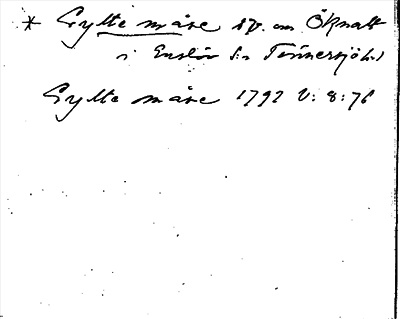 * Gylte måse sv. om Öknalt
i Enslöv s:n Tönnersjö h.d
Gylte måse 1792 V: 8: 76